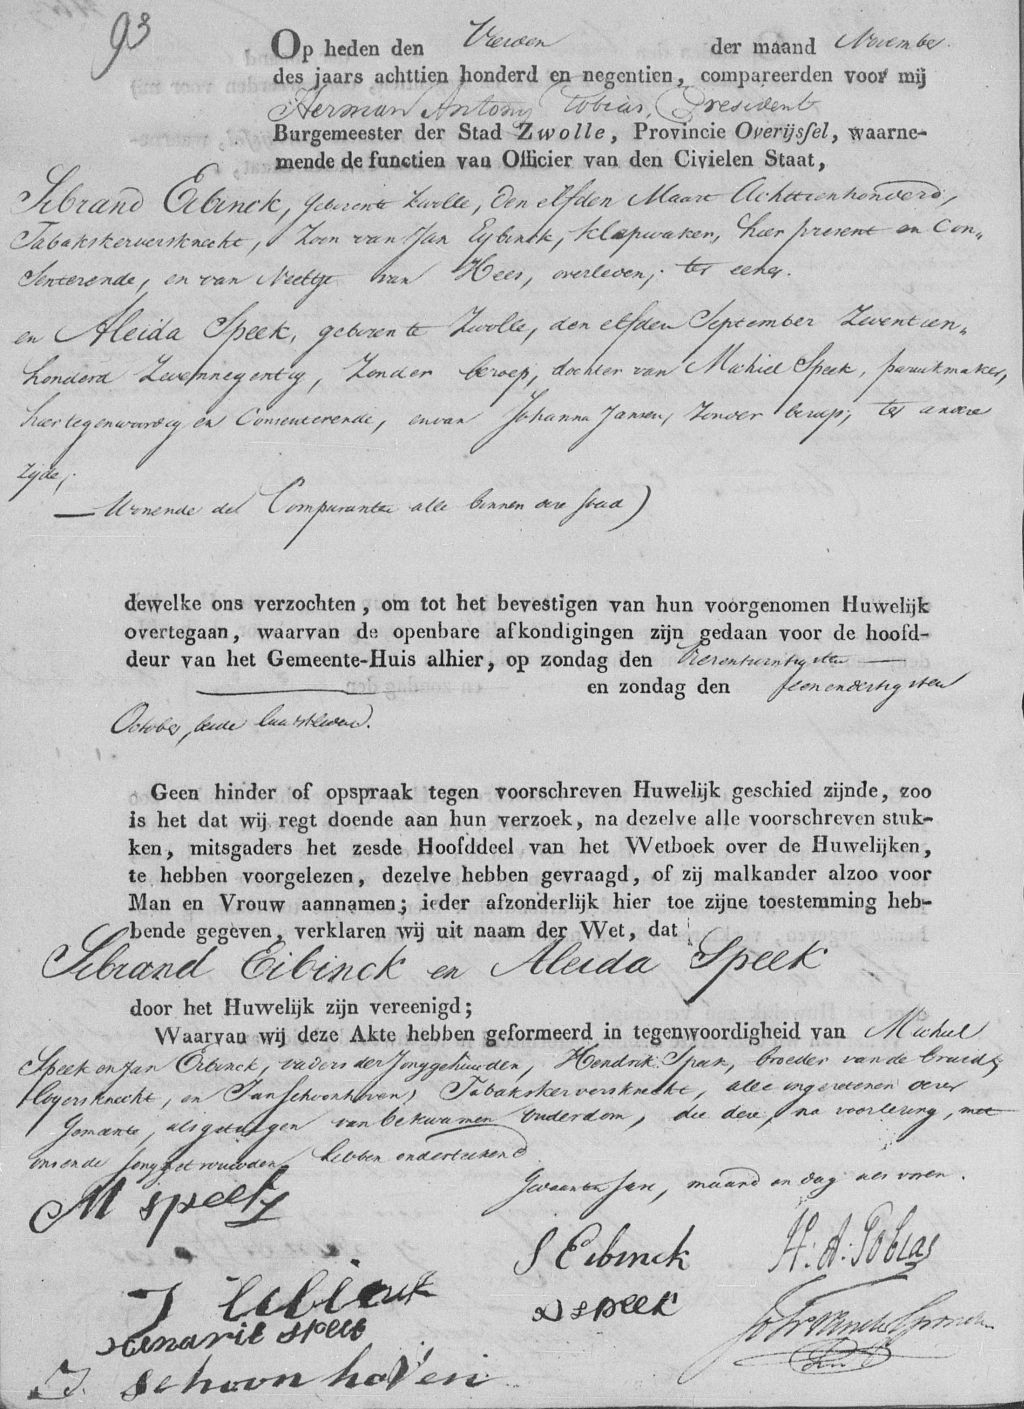 93
Op heden den Vierden der maand November
des jaars achttien honderd en negentien, compareerden voor mij
Herman Antony Tobias, President
Burgemeester der Stad Zwolle, Provincie Overijssel, waarne-
mende de functien van Officier van den Civielen Staat,
Sibrand Eibinck, geboren te Zwolle, den elfden Maart Achttienhonderd,
Tabakskerversknecht, Zoon van Jan Eybinck, klapwaker, hier present en Con-
senterende, en van Neeltje van Hees, overleden; ter eener
en Aleida Speek, geboren te Zwolle, den elfden September Zeventien-
honderd Zevennegentig, Zonder beroep, dochter van Michiel Speek, paruikmaker,
hier tegenwoordig en Consenterende, en van Johanna Jansen, Zonder beroep; ter andere
zijde;
Wonende de Comparanten alle binnen deze stad)
dewelke ons verzochten, om tot het bevestigen van hun voorgenomen Huwelijk
overtegaan, waarvan de openbare afkondigingen zijn gedaan voor de hoofd-
deur van het Gemeente-Huis alhier, op zondag den Vierentwintigsten
en zondag den Eenendertigsten
October, beide laatstleden.
Geen hinder of opspraak tegen voorschreven Huwelijk geschied zijnde, zoo
is het dat wij regt doende aan hun verzoek, na dezelve alle voorschreven stuk-
ken, mitsgaders het zesde Hoofddeel van het Wetboek over de Huwelijken,
te hebben voorgelezen, dezelve hebben gevraagd, of zij malkander alzoo voor
Man en Vrouw aannamen; ieder afzonderlijk hier toe zijne toestemming heb-
bende gegeven, verklaren wij uit naam der Wet, dat
Sibrand Eibinck en Aleida Speek
door het Huwelijk zijn vereenigd;
Waarvan wij deze Akte hebben geformeerd in tegenwoordigheid van Michiel
Speek en Jan Eibinck, vaders der Jonggehuwden, Hendrik Speek, broeder van de bruid,
Slogersknecht, en Jan Schoonhoven, Tabakskerversknecht, alle ingezetenen dezer
Gemeente, als getuigen van bekwamen Ouderdom, die deze, na voorlezing, met
ons en de Jonggetrouwden hebben ondertekend
Zwolle Jaar, maand en dag als voren.
M speek
S Eibinck
H: A: Tobias
J Eibinck
A speek
Henderik speek
J. schoonhoven